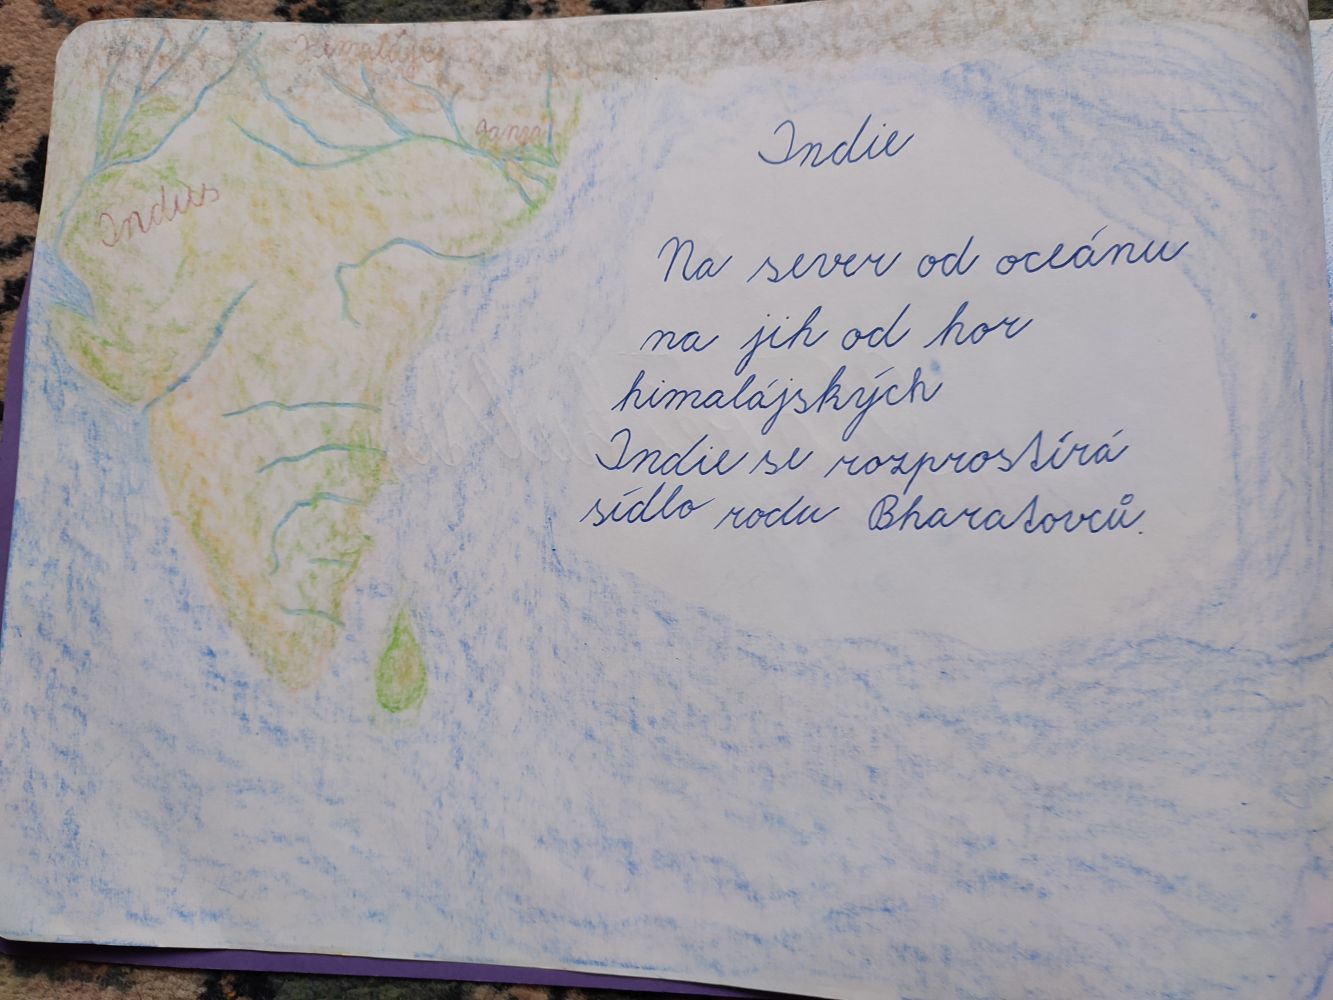 Himaláje
Ganga
Indus
Indie
Na sever od oceánu
na jih od hor
himalájských
Indie se rozprostírá
sídlo rodu Bharatovců.